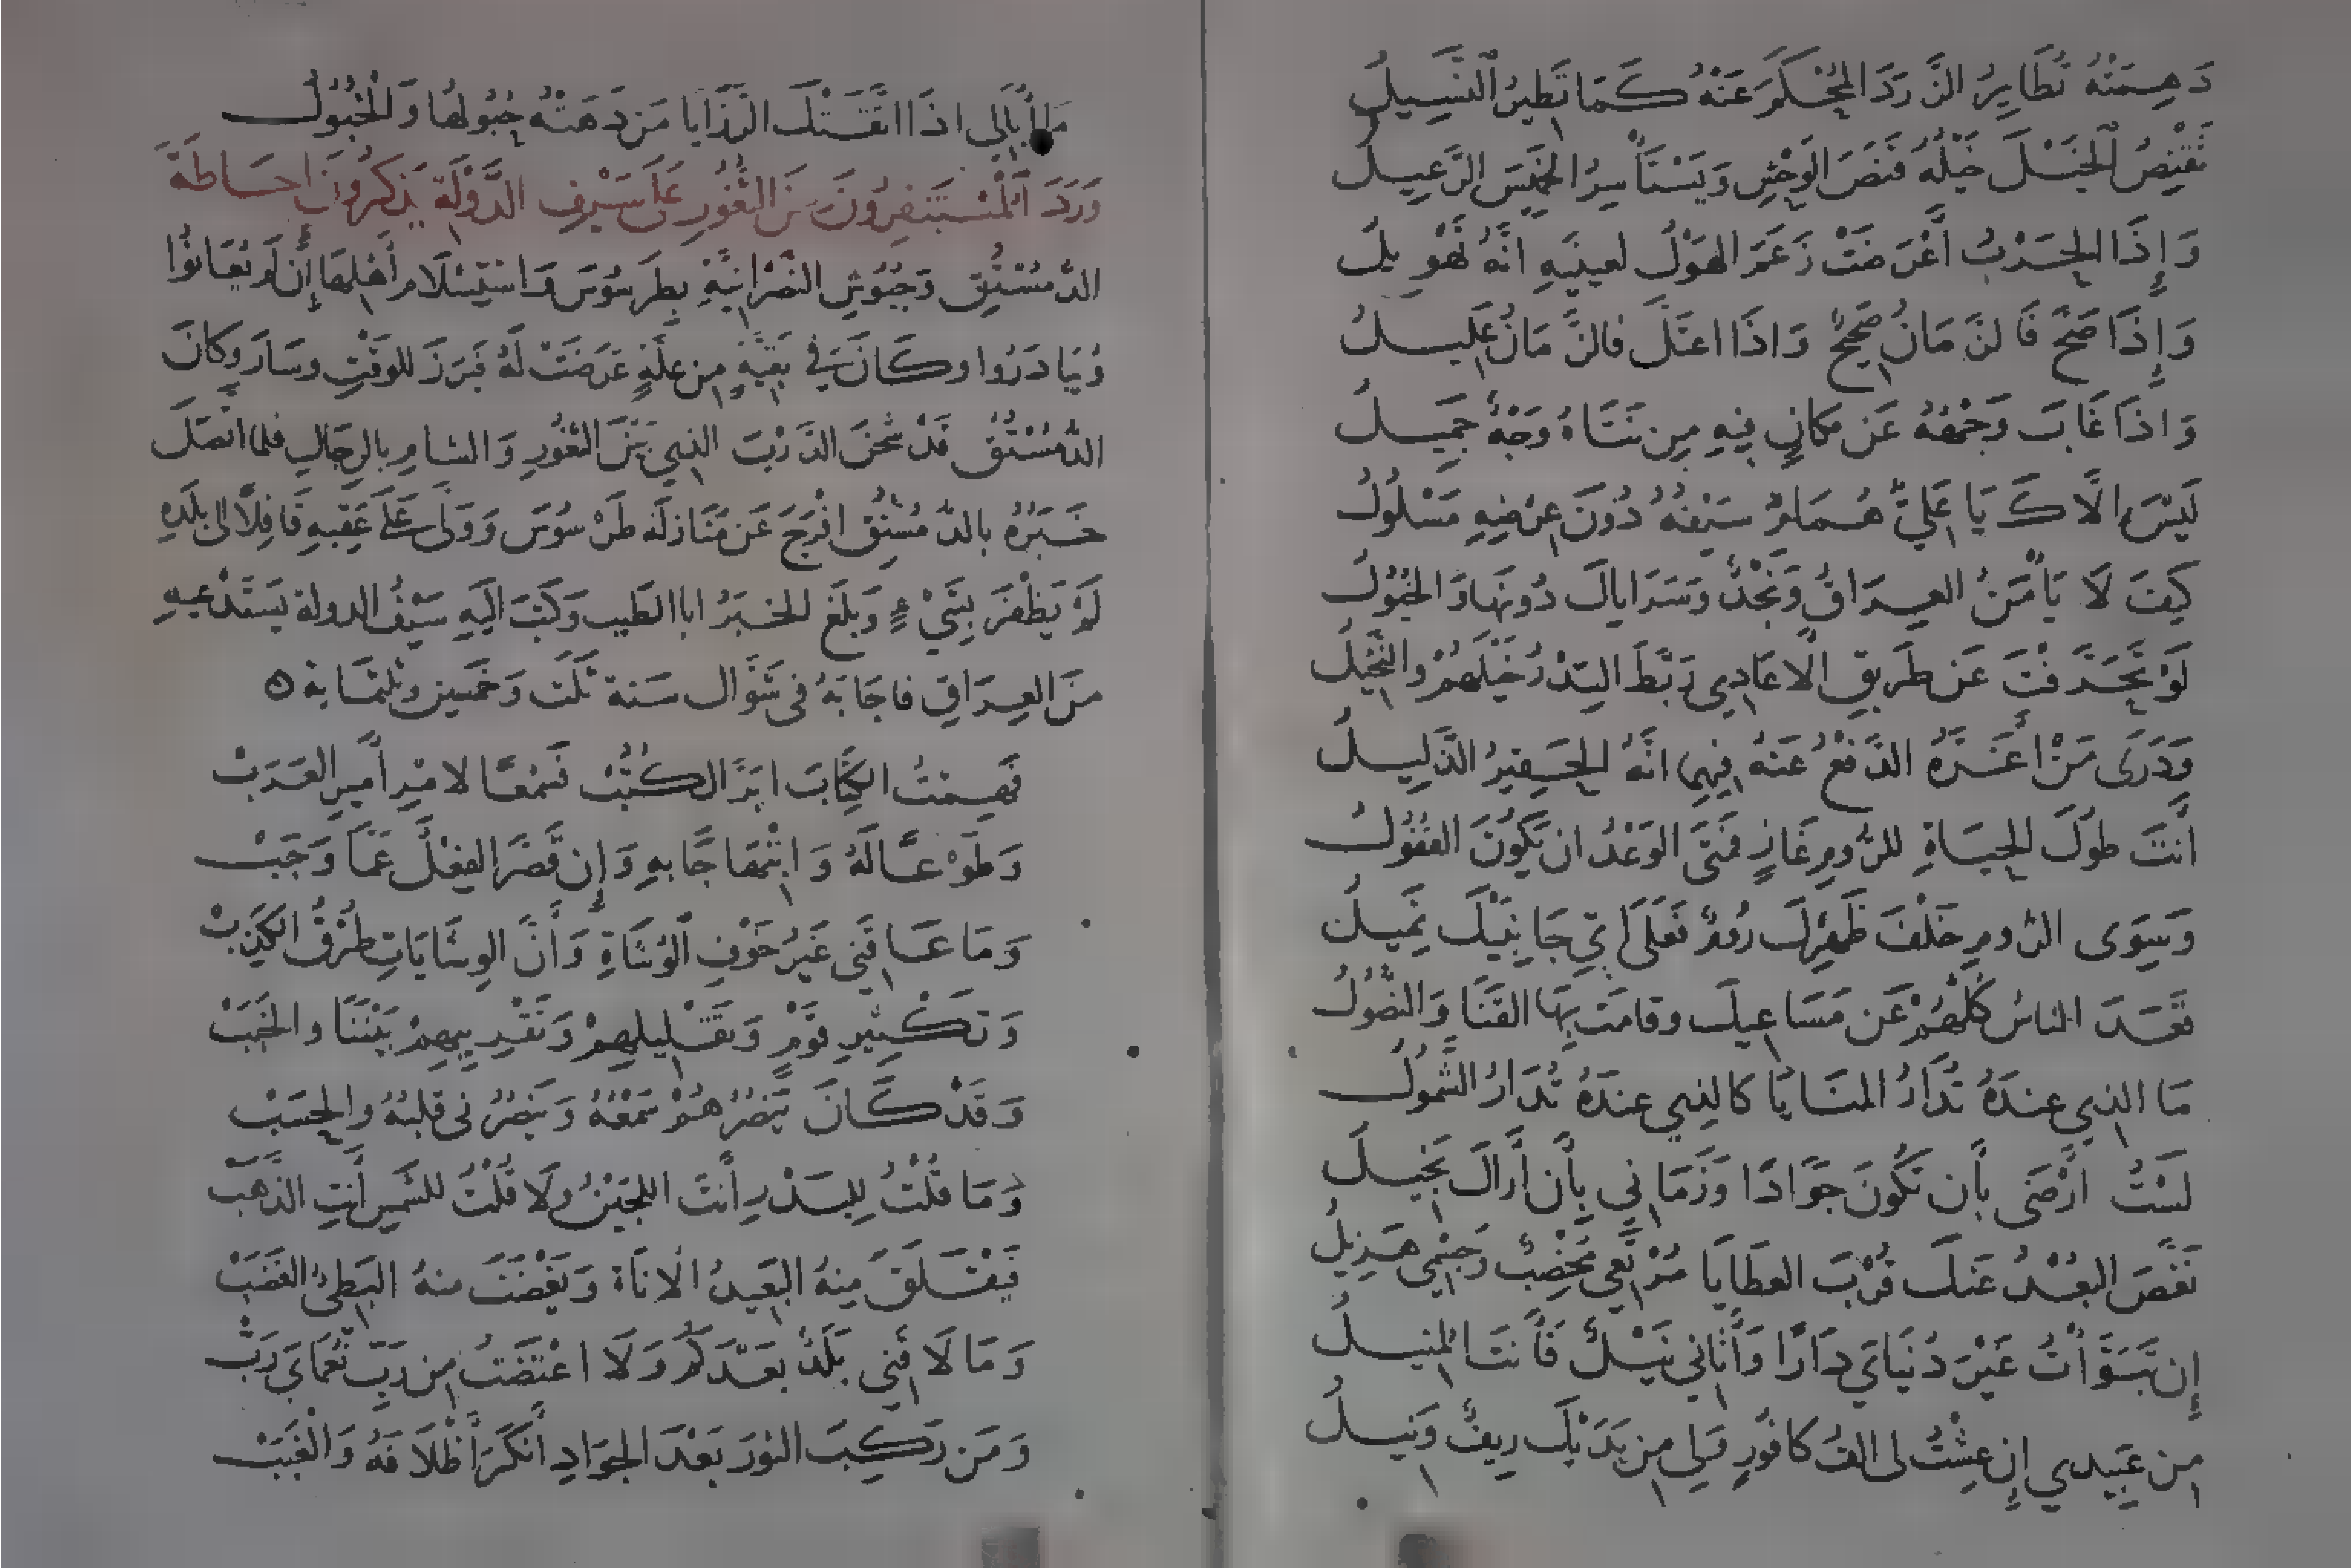 دَهِمَتْهُ تُطَايِرُ الزَّرَدَ المُحْكَمَ عَنْهُ كَمَا تَطِيرُ النَّسِيلُ
تَقْنِصُ الخَيْلَ خَيْلُهُ قَنَصَ الوَحْشِ وَيَسْتَأْسِرُ الخَمِيسَ الرَّعِيلُ
وَإِذَا الحَرْبُ أَعْرَضَتْ زَعَمَ الهَوْلُ لعينَيهِ انَّهُ تَهْوِيلُ
وَإِذَا صَحَّ فَالزَّمَانُ صَحِيحٌ وَاذَا اعْتَلَّ فالزَّمَانُ عَلِيلُ
وَاذَا غَابَ وَجْهُهُ عَن مَكَانٍ فِيهِ مِن نَثَاهُ وَجْهٌ جَمِيلُ
لَيْسَ الَّاكَ يَا عَلِيُّ هُمَامٌ سَيْفُهُ دُونَ عِرْضِهِ مَسْلُولُ
كَيفَ لَا يَأْمَنُ العِرَاقُ وَنَجْدٌ وَسَرَايَاكَ دُونَهَا وَالخُيُولُ
لَوْ تَحَرَّفْتَ عَن طَرِيقِ الأَعَادِي رَبَطَ السِّدْرُ خَيْلَهُمْ وَالنَّخِيلُ
وَدَرَى مَنْ أَعَزَّهُ الدَّفْعُ عَنْهُ فِيهِمَا انَّهُ الحَقِيرُ الذَّلِيلُ
أَنْتَ طُولَ الحَيَاةِ للرُّومِ غَازٍ فَمَتَى الوَعْدُ ان يَكُونَ القُفُولُ
وَسِوَى الرُّومِ خَلْفَ ظَهْرِكَ رُومٌ فَعَلَى أَيِّ جَانِبَيْكَ تَمِيلُ
قَعَدَ الناسُ كُلُّهُمْ عَن مَسَاعِيكَ وقامَت بِهَا القَنَا وَالنُّصُولُ
مَا الذِي عِندَهُ تُدَارُ المَنَايَا كالذِي عِندَهُ تُدَارُ الشَّمُولُ
لَسْتُ أَرْضَى بِأَن تَكُونَ جَوَادًا وَزَمَانِي بِأَن أَرَاكَ بَخِيلُ
نَغَّصَ البُعْدُ عَنكَ قُرْبَ العَطَايَا مَرْتَعِي مُخْصِبٌ وَجِسْمِي هَزِيلُ
إِن تَبَوَّأْتُ غَيْرَ دُنْيَايَ دَارًا وَأَتَانِي نَيْلٌ فَأَنتَ المُنِيلُ
مِن عَبِيدِي إِن عِشْتُ لى الفُ كافُورٍ وَلِي مِن يَدَيْكَ رِيفٌ وَنِيلُ
مَا أُبَالِي اذَا اتَّقَتْكَ الرَّزَايَا مَن دَهَتْهُ حُبُولُهَا وَالخُبُولُ
وَرَدَ المُسْتَنفِرُونَ مِنَ الثُّغُورِ عَلَى سَيْفِ الدَّوْلَةِ يَذكُرُونَ احَاطَةَ
الدُّمُسْتُقِ وَجُيُوشِ النَّصْرَانِيَّةِ بِطَرَسُوسَ وَاسْتِسْلَامَ أَهْلِهَا إِن لَم يُعَانُوا
وَيُبَادَرُوا وكَانَ فِي بَقِيَّةٍ مِن عِلَّةٍ عَرَضَتْ لَهُ فَبَرَزَ للوَقْتِ وسَارَ وكَانَ
الدُّمُسْتُقُ قَدْ شَحَنَ الدَّرْبَ الذِي بَيْنَ الثُّغُورِ وَالشامِ بالرِجَالِ فلما اتَّصَلَ
خَبَرُهُ بالدُّمُسْتُقِ افْرَجَ عَن مُنَازَلَةِ طَرَسُوسَ وَوَلَّى عَلَى عَقِبِهِ قَافِلًا الى بَلَدِهِ
لَمْ يَظْفَرْ بِشَيْءٍ وَبَلَغَ الخَبَرُ ابا الطيب وَكَتَبَ الَيهِ سَيْفُ الدولة يَسْتَدْعِيهِ
مِنَ العِرَاقِ فاجَابَهُ فى شَوَّال سَنة ثَلَث وَخَمسِين وثلثمَاية ه
فَهِمْتُ الكِتَابَ ابَرَّ الكُتُبْ فَسَمْعًا لامْرِ أَمِيرِ العَرَبْ
وَطَوْعًا لَهُ وَابْتِهَاجًا بهِ وَإِن قَصَّرَ الفِعْلُ عَمَّا وَجَبْ
وَمَا عَاقَنِي غَيْرُ خَوْفِ الوُشَاةِ وَأَنَّ الوِشَايَاتِ طُرْقُ الكَذِبْ
وَتَكْثِيرِ قَوْمٍ وَتَقْلِيلِهِمْ وَتَقْرِيبِهِمْ بَيْنَنَا والخَبَبْ
وَقَدْ كَانَ يَنصُرُهُمْ سَمْعُهُ وَيَنصُرُنى قَلبُهُ والحَسَبْ
وَمَا قُلْتُ لِلبَدْرِ أَنتَ اللُجَيْنُ وَلَا قُلْتُ للشَّمسِ أَنتِ الذَّهَبْ
فَيَقْلَقَ مِنهُ البَعِيدُ الأنَاةِ وَيَغْضَبَ منهُ البَطِيُّ الغَضَبْ
وَمَا لَاقَنِي بَلَدٌ بَعْدَكُمْ وَلَا اعْتَضتُ مِن رَبِّ نُعْمَايَ رَبْ
وَمَن رَكِبَ الثَوْرَ بَعْدَ الجَوَادِ أَنكَرَ أَظْلَافَهُ وَالْغَبَبْ